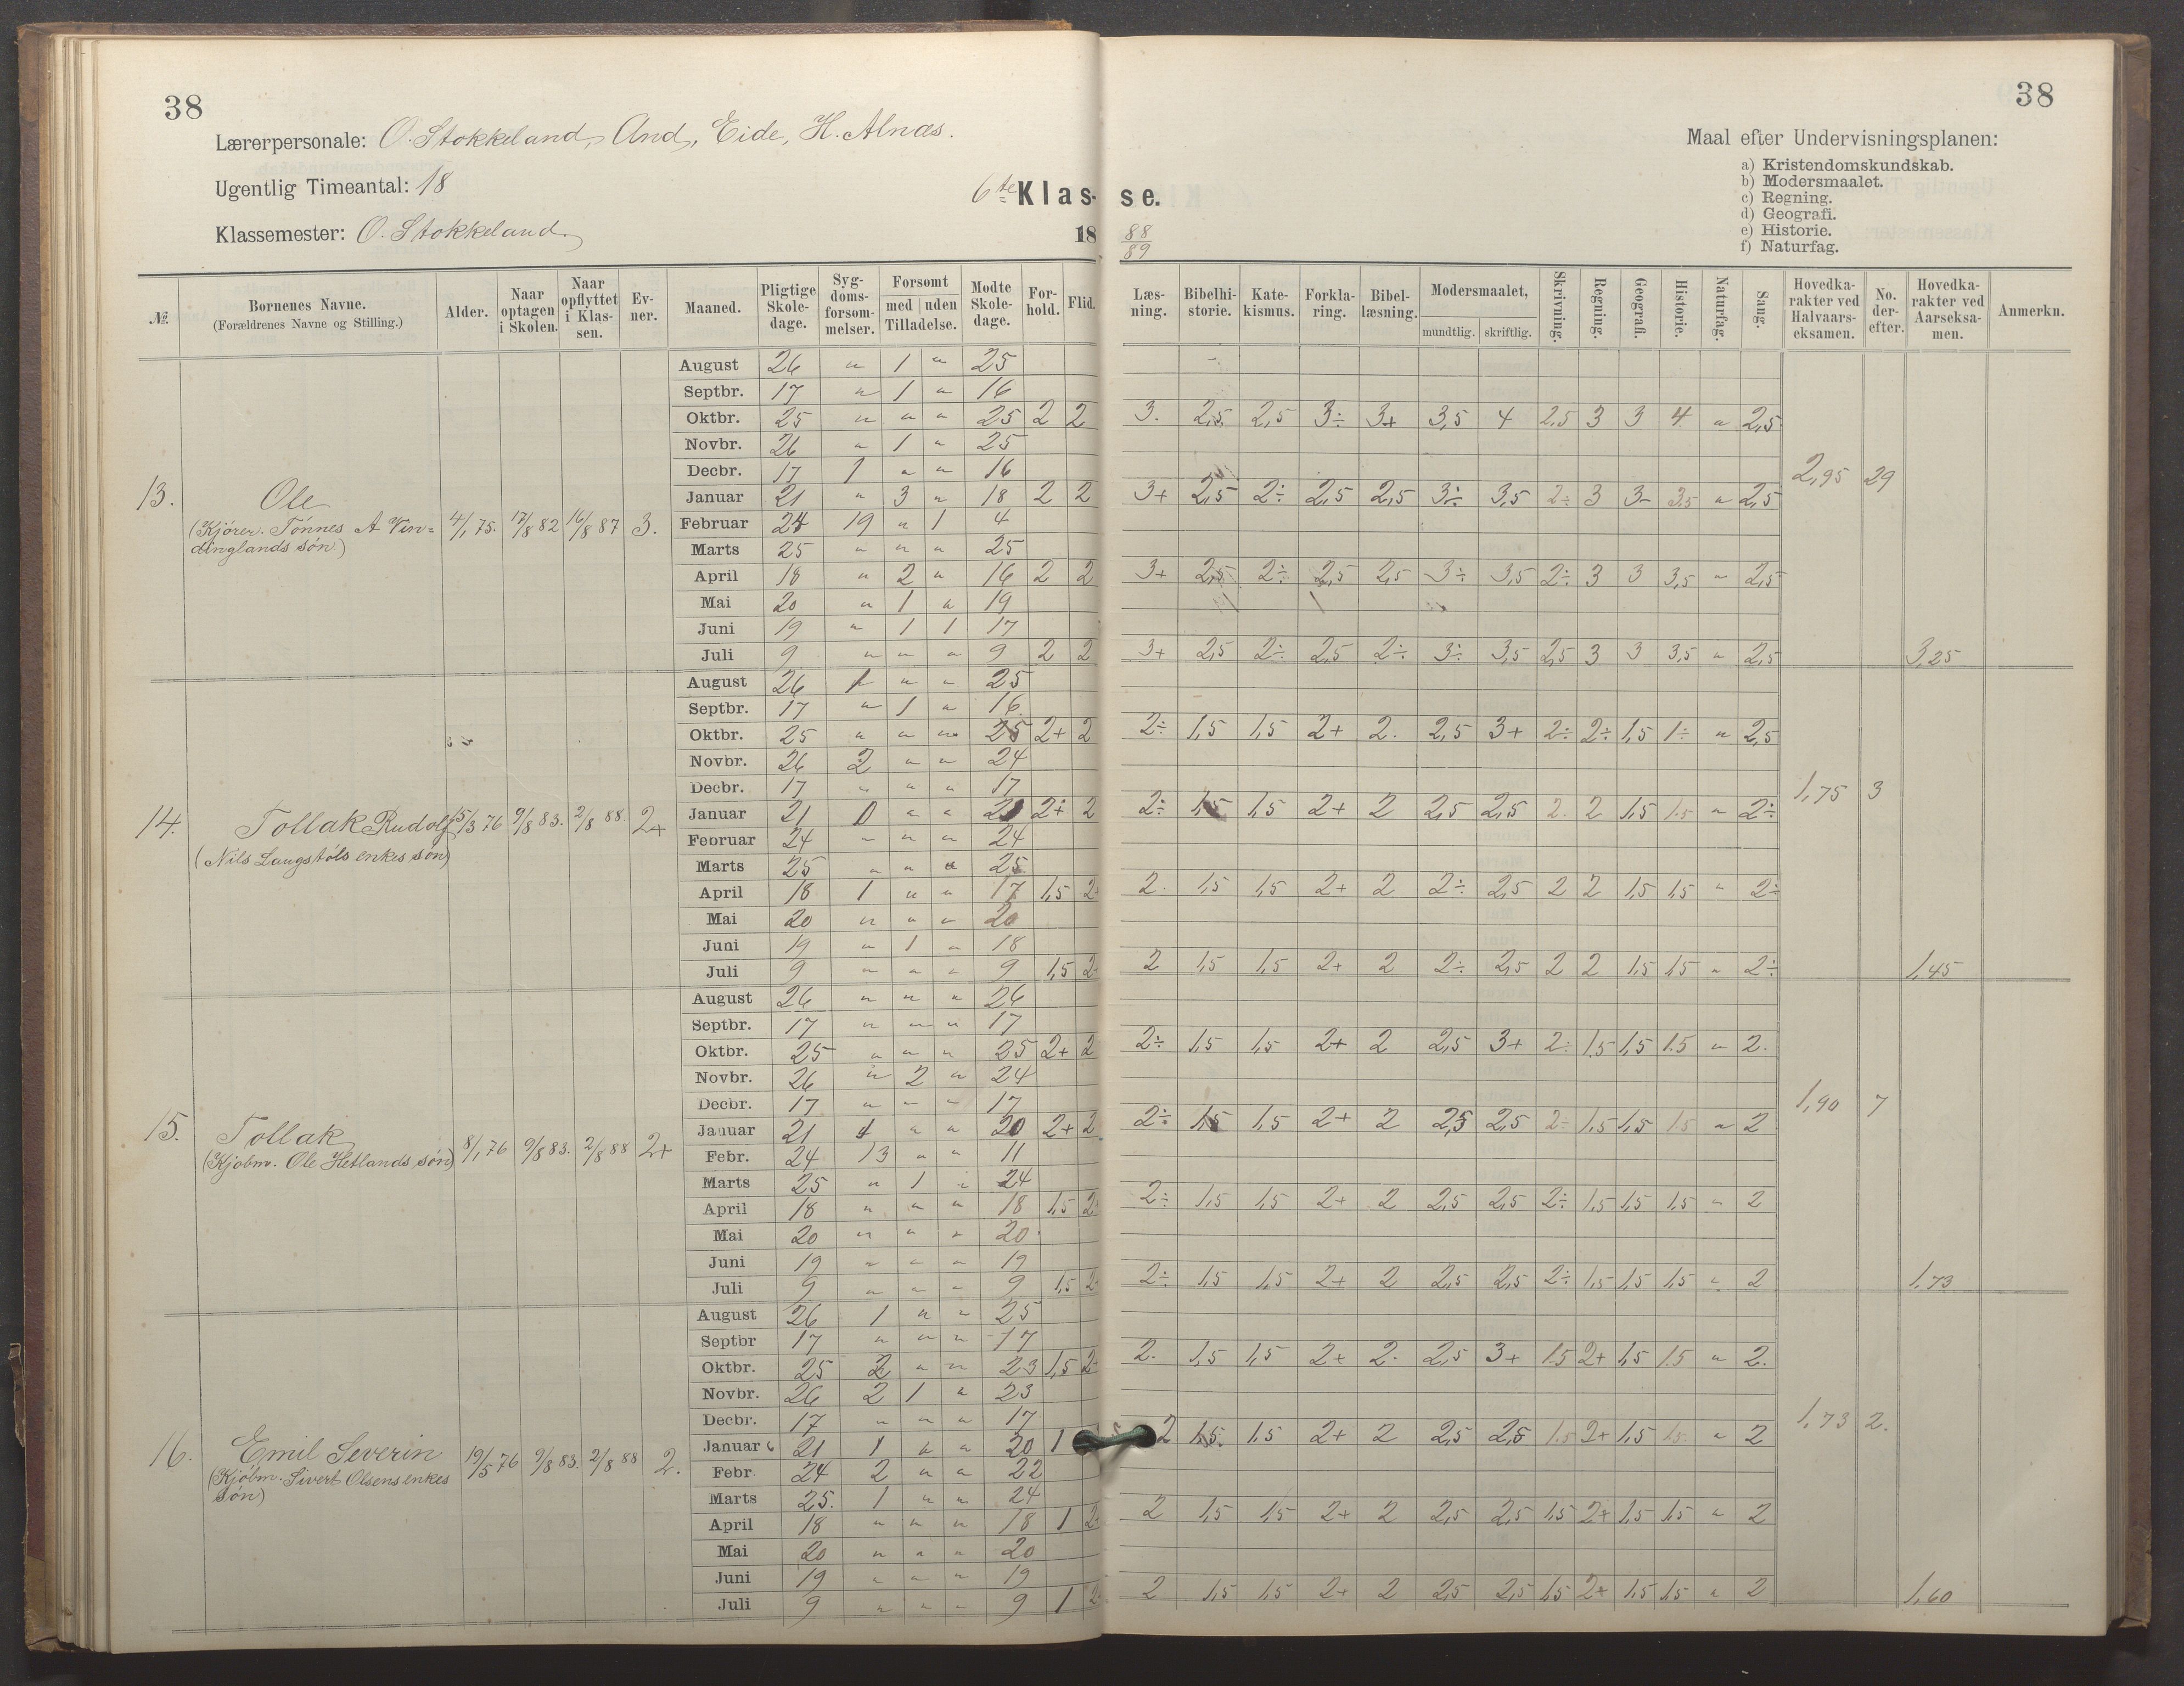 38
Lærerpersonale: O. Stokkeland, And, Eide, H. Alnæs.
Ugentlig Timeantal: 18
Klassemester: O. Stokkeland.
6te Klas-
18
38
Maal efter Undervisningsplanen:
a) Kristendomskundskab.
b) Modersmaalet.
c) Regning.
d) Geografi.
e) Historie.
f) Naturfag.
se.
88
89
№ Børnenes Navne. (Forældrenes Navne og Stilling.) Alder. Naar optagen i Skolen. Naar opflyttet i Klassen. Evner. Maaned. Pligtige Skoledage. Sygdomsforsømmelser. Forsømt med uden Tilladelse. Mødte Skoledage. Forhold. Flid.
Læsning. Bibelhistorie. Katekismus. Forklaring. Bibellæsning. Modersmaalet, mundtlig. skriftlig. Skrivning. Regning. Geografi. Historie. Naturfag. Sang. Hovedkarakter ved Halvaarseksamen. No. derefter. Hovedkarakter ved Aarseksamen. Anmerkn.
13. Ole
(Kjører. Tønnes A Vin=
dinglands søn.)
4/1 75. 17/8 82 16/8 87 3.
August 26 " 1 " 25
Septbr. 17 " 1 " 16
Oktbr. 25 " " " 25 2 2 3. 2,5 2,5 3÷ 3+ 3,5 4 2,5 3 3 4 " 2,5
Novbr. 26 " 1 " 25
Decbr. 17 1 " " 16
2,95 29
Januar 21 " 3 " 18 2 2 3+ 2,5 2÷ 2,5 2,5 3÷ 3,5 2÷ 3 3- 3,5 " 2,5
Februar 24 19 " 1 4
Marts 25 " " " 25
April 18 " 2 " 16 2 2 3+ 2,5 2÷ 2,5 2,5 3÷ 3,5 2÷ 3 3 3,5 " 2,5
Mai 20 " 1 " 19
Juni 19 " 1 1 17
Juli 9 " " " 9 2 2 3+ 2,5 2÷ 2,5 2÷ 3÷ 3,5 2,5 3 3 3,5 " 2,5 3,25
14. Tollak Rudolf
(Nils Langstøls enkes søn)
15/3 76 9/8 83. 2/8 88. 2+
August 26 1 " " 25
Septbr. 17 " 1 " 16
Oktbr. 25 " " " 25 2+ 2 2÷ 1,5 1,5 2+ 2. 2,5 3+ 2÷ 2÷ 1,5 1÷ " 2,5
Novbr. 26 2 " " 24
Decbr. 17 " " " 17
1,75 3
Januar 21 " " 2÷ 2 2÷ 1,5 1,5 2+ 2 2,5 2,5 2. 2 1,5 1.5 " 2÷
Februar 24 " " " 24
Marts 25 " " " 25
April 18 1 " " 17 1,5 2+ 2. 1,5 1,5 2+ 2 2÷ 2,5 2 2 1,5 1,5 " 2÷
Mai 20 " " " 20
Juni 19 " 1 " 18
Juli 9 " " " 9 1,5 2+ 2 1,5 1,5 2+ 2 2÷ 2,5 2 2 1,5 1,5 " 2÷ 1,45
15. Tollak
(Kjøbm. Ole Hetlands søn)
8/1 76 9/8 83. 2/8 88 2+
August 26 " " " 26
Septbr. 17 " " " 17
Oktbr. 25 " " " 25 2+ 2 2÷ 1,5 1,5 2+ 2 2,5 3+ 2÷ 1.5 1,5 1.5 " 2.
Novbr. 26 " 2 " 24
Decbr. 17 " " " 17
1,90 7
Januar 21 1 " " 20 2+ 2 2÷ 1,5 1,5 2+ 2 2,5 2,5 2÷ 1.5 1,5 1.5 " 2
Febr. 24 13 " " 11
Marts 25 " 1 " 24
April 18 " " " 18 1,5 2+ 2÷ 1,5 1,5 2+ 2 2,5 2,5 2÷ 1,5 1,5 1,5 " 2
Mai 20 " " " 20
Juni 19 " " " 19
Juli 9 " " " 9 1,5 2+ 2÷ 1,5 1,5 2+ 2 2,5 2,5 2÷ 1,5 1,5 1,5 " 2 1,73
16. Emil Severin
(Kjøbm. Sivert Olsens enkes
søn)
19/5 76 9/8 83. 2/8 88 2.
August 26 1 " " 25
Septbr 17 " " " 17
Oktbr. 25 2 " " 23 1,5 2+ 2. 1,5 1,5 2+ 2. 2,5 3+ 1.5 2+ 1,5 1.5 " 2.
Novbr. 26 2 1 " 23
Decbr. 17 " " " 17
1,73 2.
Januar 21 1 " " 20 1 2 1,5 1,5 2+ 2 2,5 2,5 1.5 2+ 1,5 1.5 " 2
Febr. 24 2 " " 22
Marts 25. 1 " " 24
April 18 " " " 18 1 2+ 2 1,5 1,5 2+ 2 2,5 2,5 1,5 2+ 1,5 1,5 " 2
Mai 20 " " " 20
Juni 19 " " " 19
Juli 9 " " " 9 1 2+ 2 1,5 1,5 2+ 2 2,5 2,5 1,5 2+ 1,5 1,5 " 2 1,60